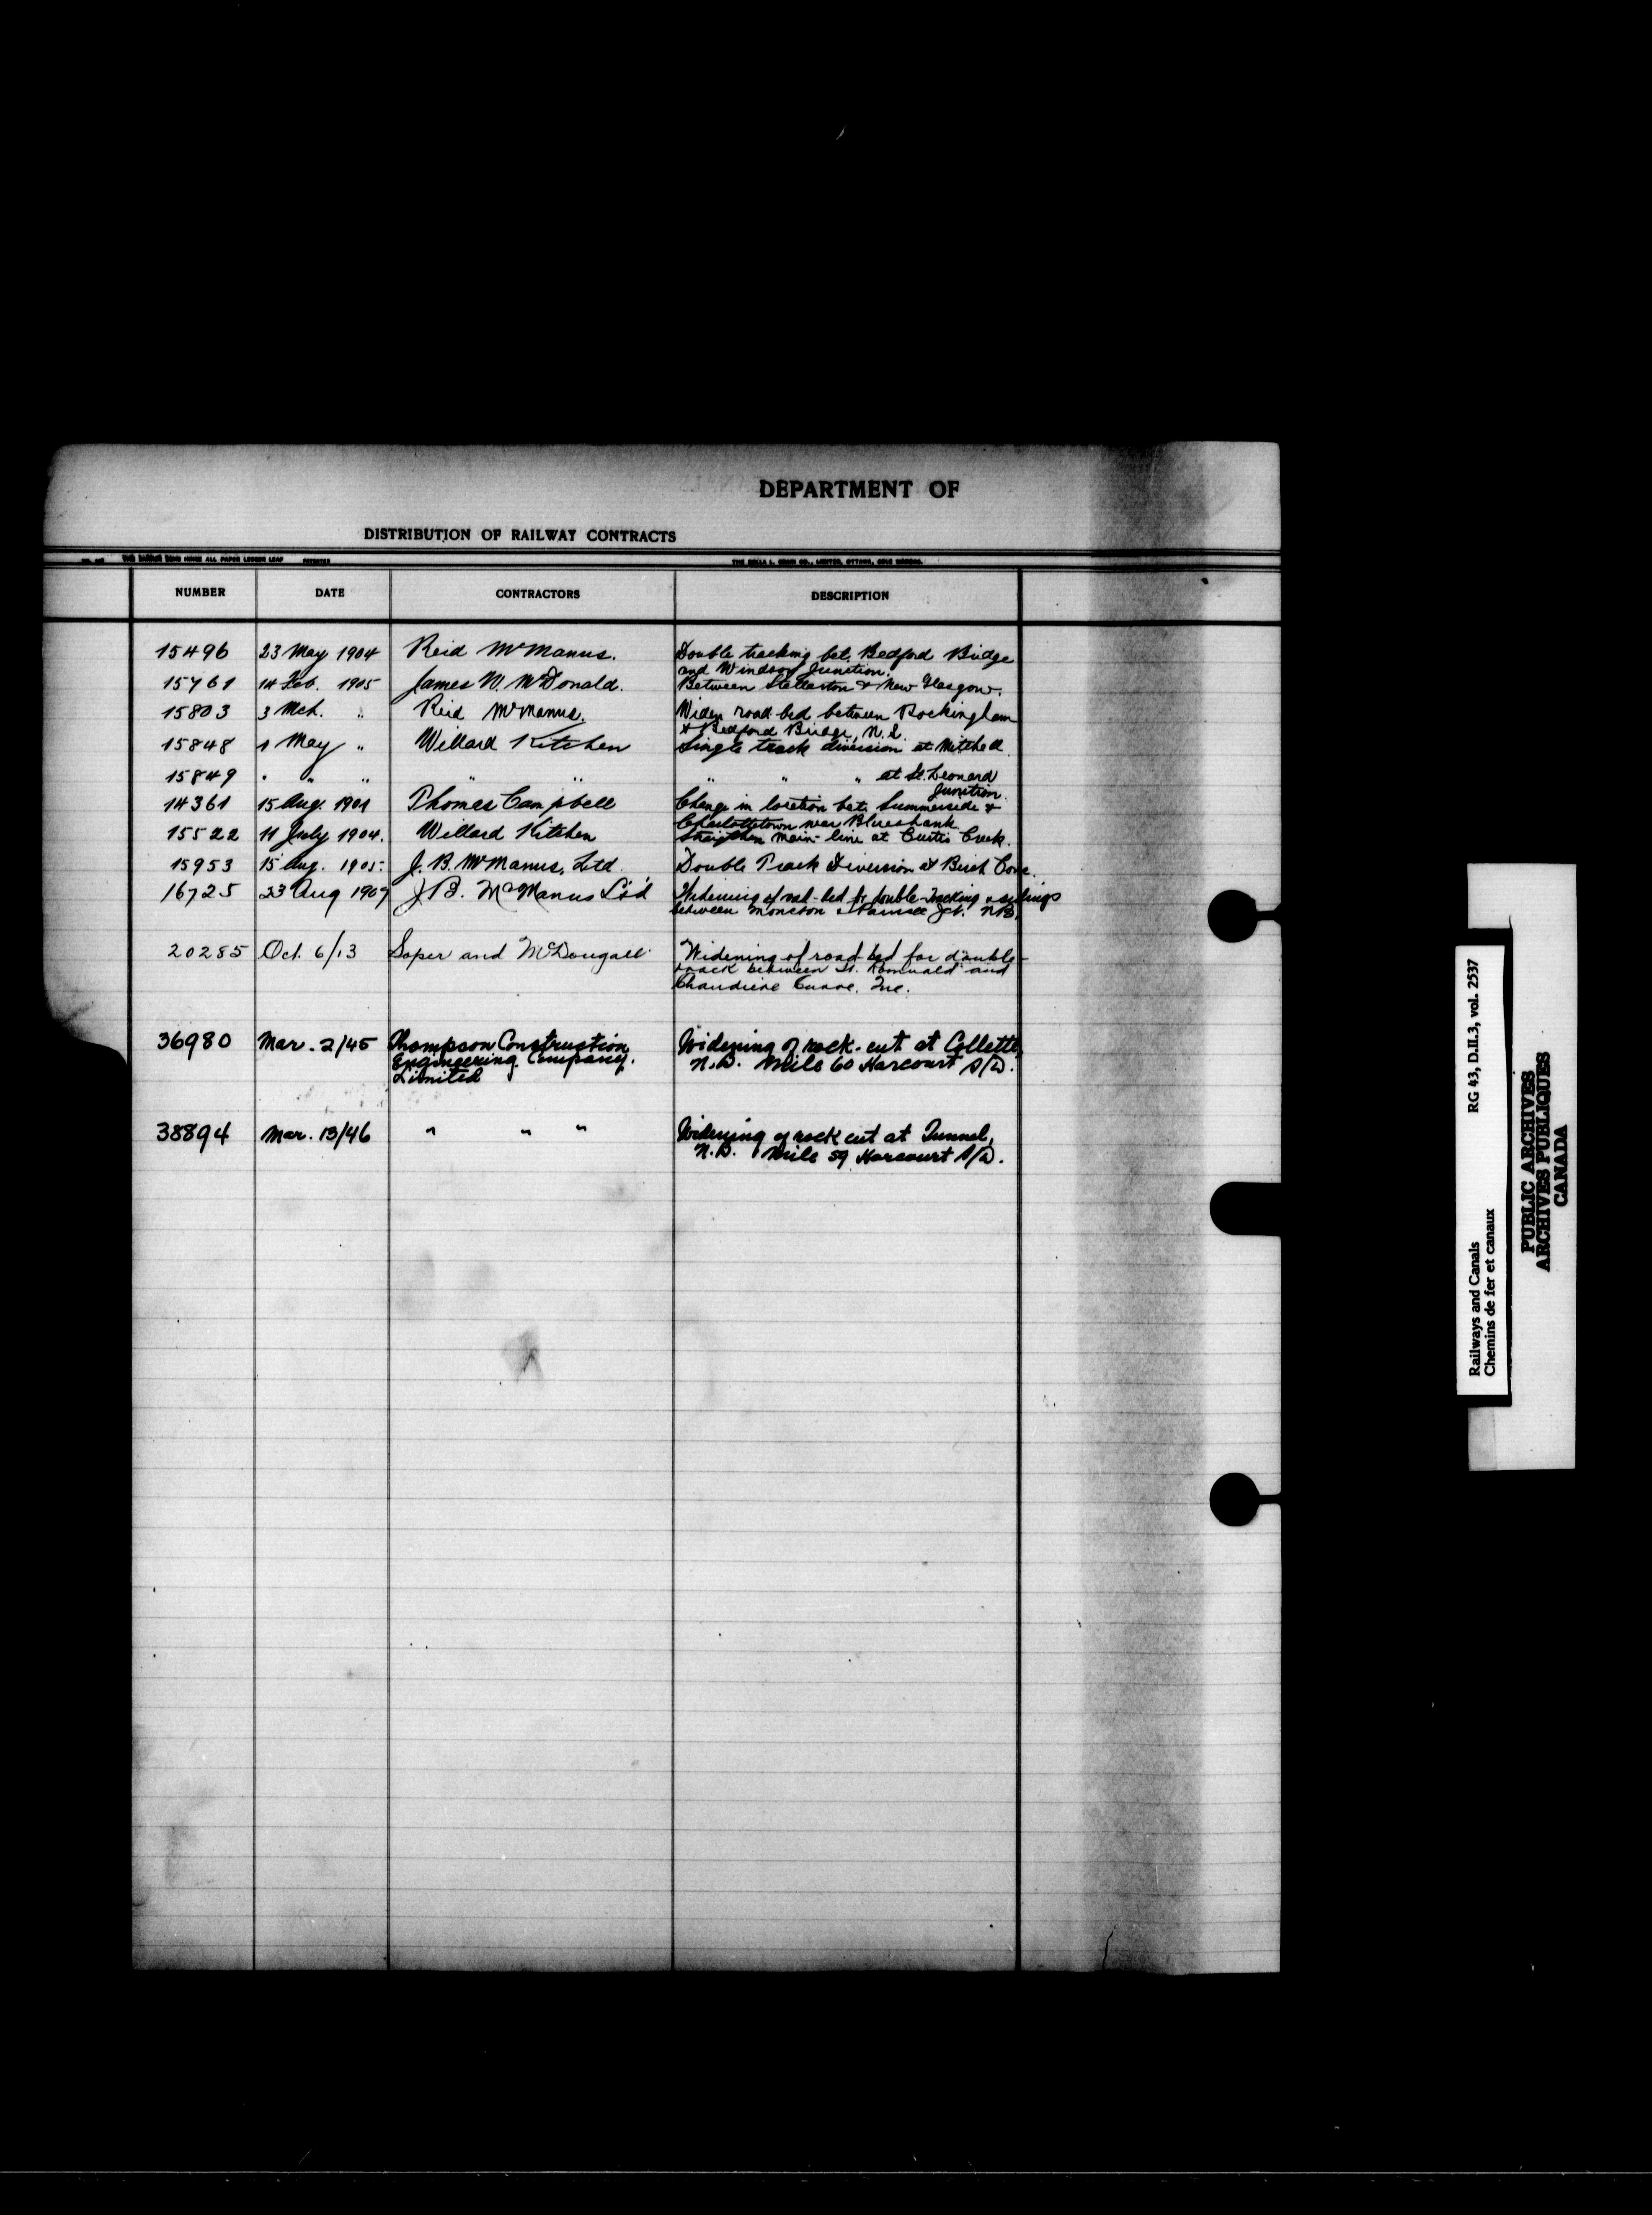 DEPARTMENT OF
DISTRIBUTION OF RAILWAY CONTRACTS
NUMBER DATE CONTRACTORS DESCRIPTION
15496 23 May 1904 Reid McManus. Double tracking bet. Bedford Bridge
and Windsor Junction.
15761 14 Feb. 1905 James W. McDonald. Between Stellarton & New Glasgow.
15803 3 Mch. " Reid McManus. Widen road bed between Rockingham
& Bedford Bridge, N.S.
15848 1 May " Willard Kitchen Single track diversion at Mitchell
15849 " " " " " " " " at St. Leonard
Junction
14361 15 Aug. 1901 Thomas Campbell Change in location bet. Summerside &
Charlottetown near Blueshank.
15522 11 July 1904. Willard Kitchen Straighten main-line at Curtis Creek.
15953 15 Aug. 1905. J. B. McManus, Ltd. Double Track Diversion at Birch Cove.
16725 23 Aug 1907 J. B. McManus Ltd Widening of road-bed for double-tracking & sidings
between Moncton & Painsec Jct. N.B.
20285 Oct. 6/13 Soper and McDougall Widening of road-bed for double-
track between St. Romuald and
Chaudiere Curve, Que.
36980 Mar. 2/45 Thompson Construction Widening of rock-cut at Collette,
Engineering Company. N.B. Mile 60 Harcourt S/D.
Limited
38894 Mar. 13/46 " " " Widening of rock cut at Tunnel,
N.B. Mile 59 Harcourt S/D.
Railways and Canals RG 43, D.II.3, vol. 2537
Chemins de fer et canaux
PUBLIC ARCHIVES
ARCHIVES PUBLIQUES
CANADA